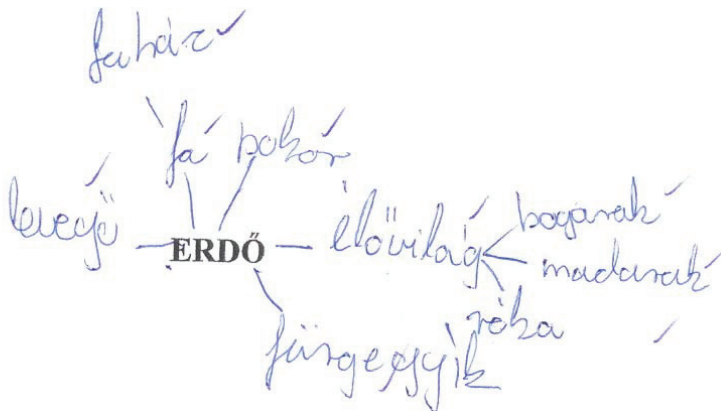 faház
fa bokor
levegő
ERDŐ
élővilág
bogarak
madarak
róka
fürgegyík